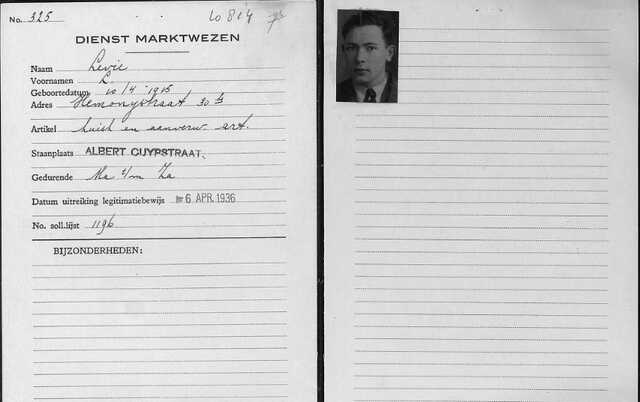 No. 325 10814
DIENST MARKTWEZEN
Naam Levie
Voornamen L.
Geboortedatum 10/4 1915
Adres Hemonystraat 30
Artikel en aanverw. art.
Staanplaats ALBERT CUYPSTRAAT.
Gedurende Ma t/m Za
Datum uitreiking legitimatiebewijs 6 APR. 1936
No. soll.lijst 1196
BIJZONDERHEDEN: